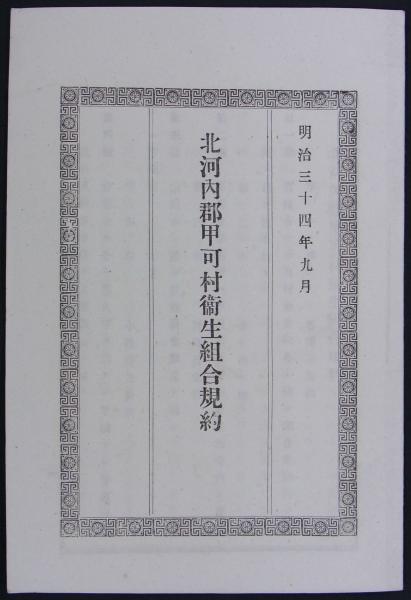 明治三十四年九月
北河內郡甲可村衞生組合規約